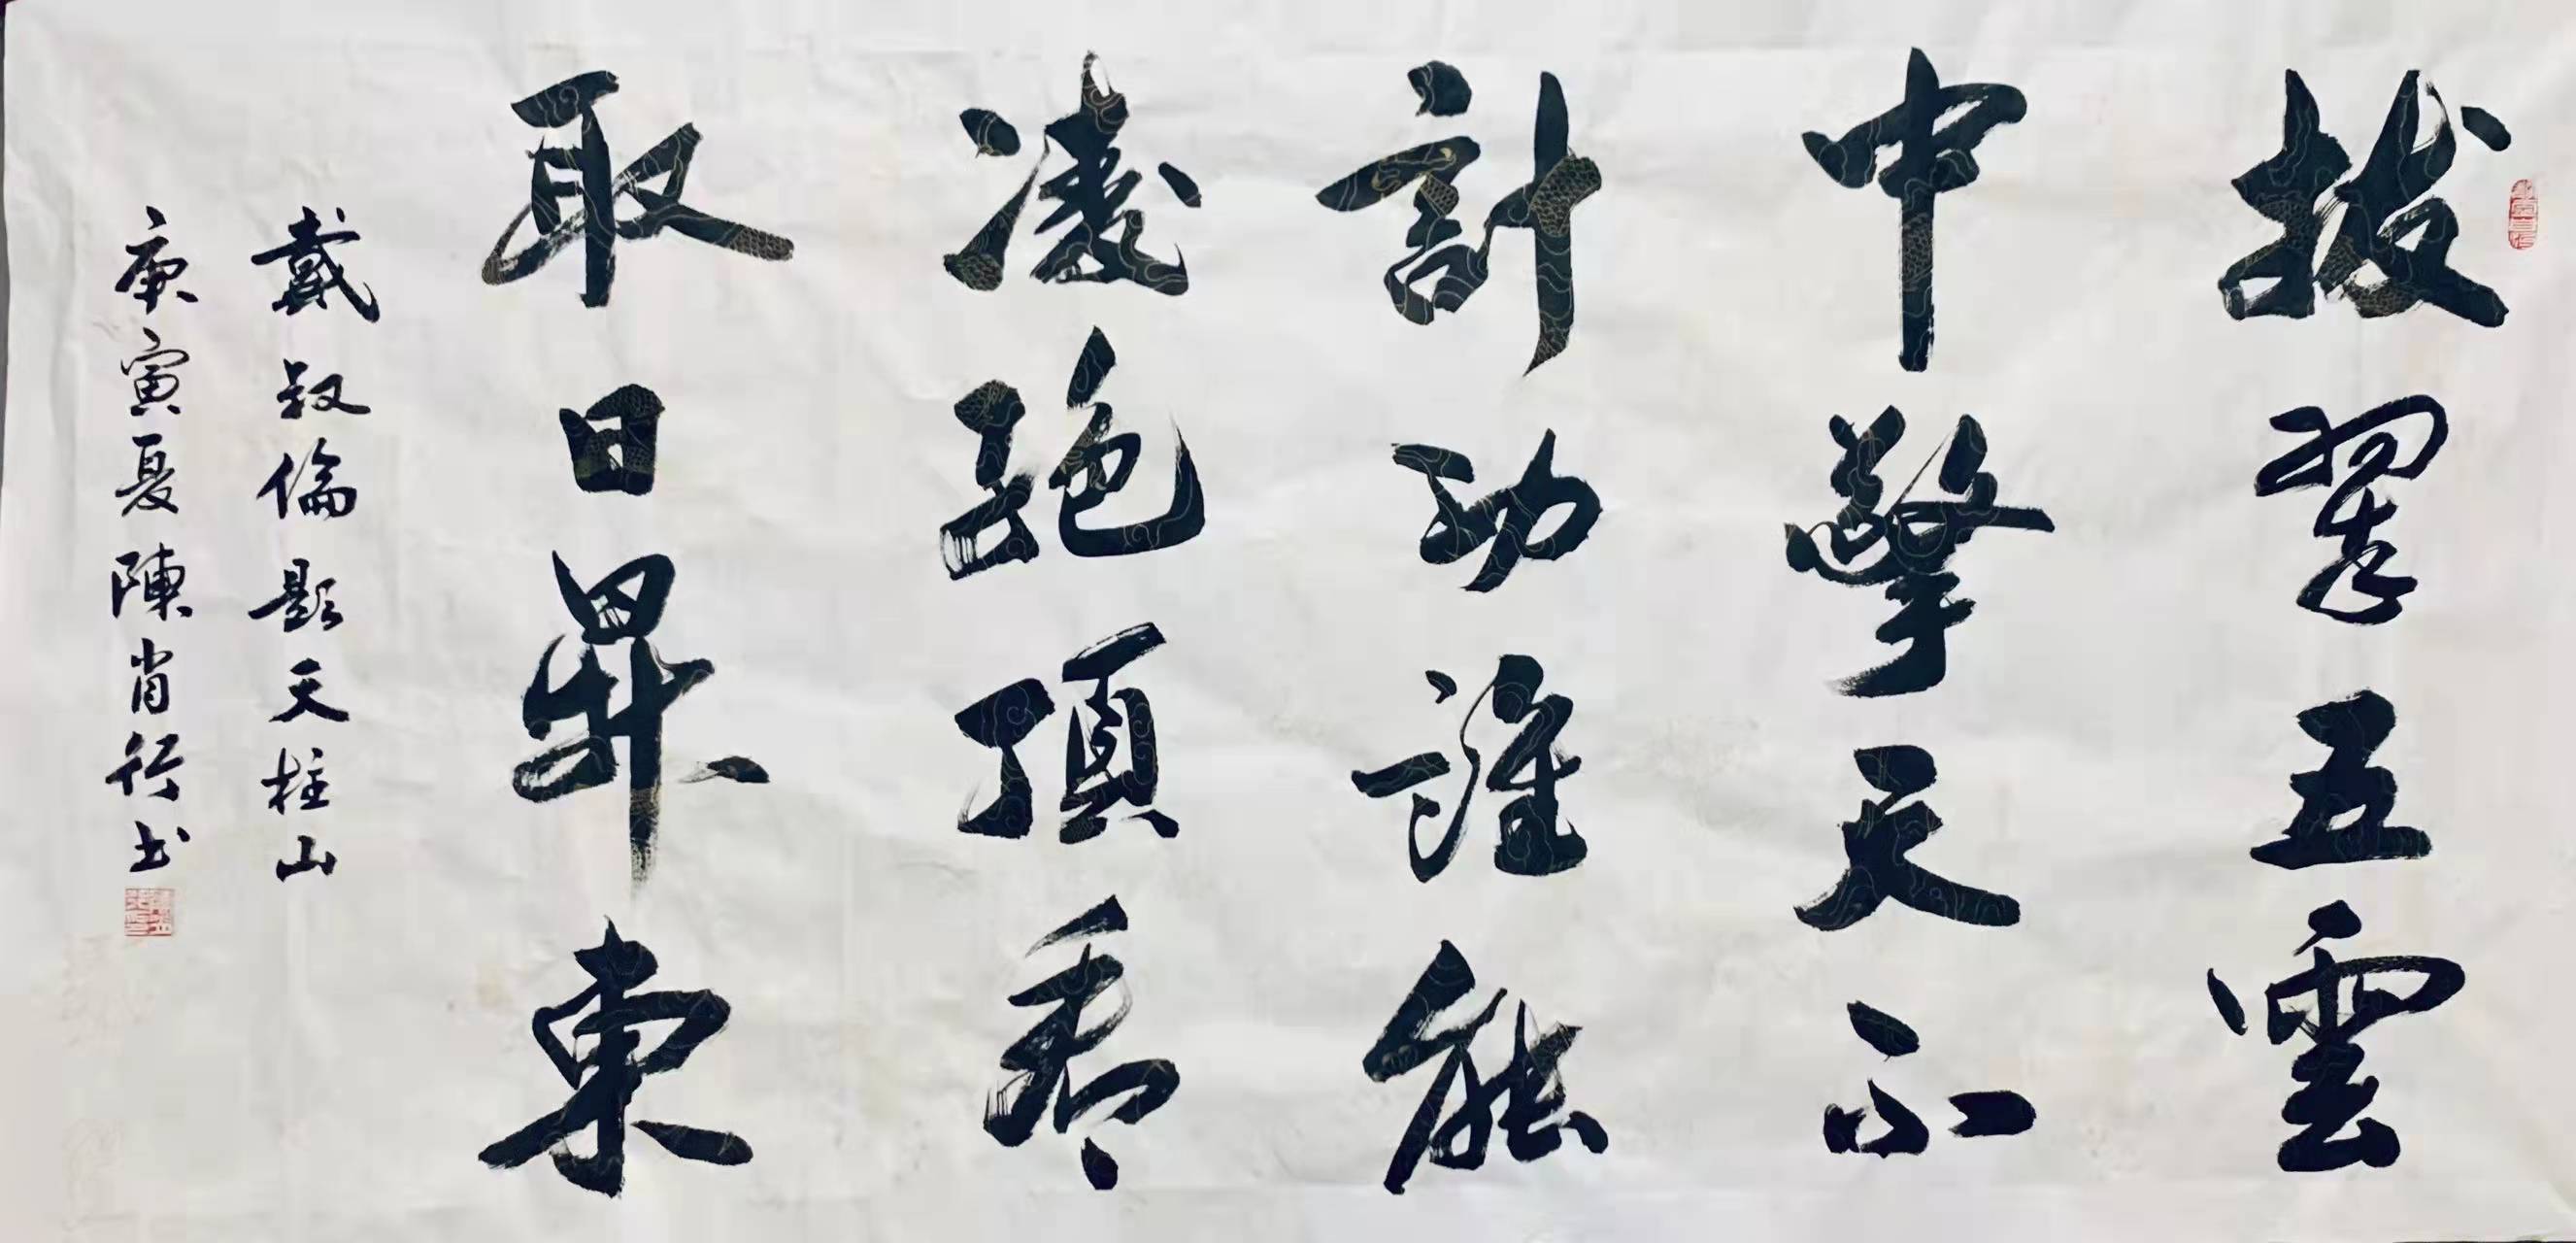 拔翠五雲
中擎天不
計功誰能
凌絕頂看
取日昇東
戴叔倫題天柱山
庚寅夏陳肖行书